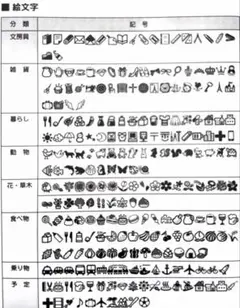 ■ 絵文字
分類 記号
文房具
雑貨
暮らし
動物
花・草木
食べ物
乗り物
予定